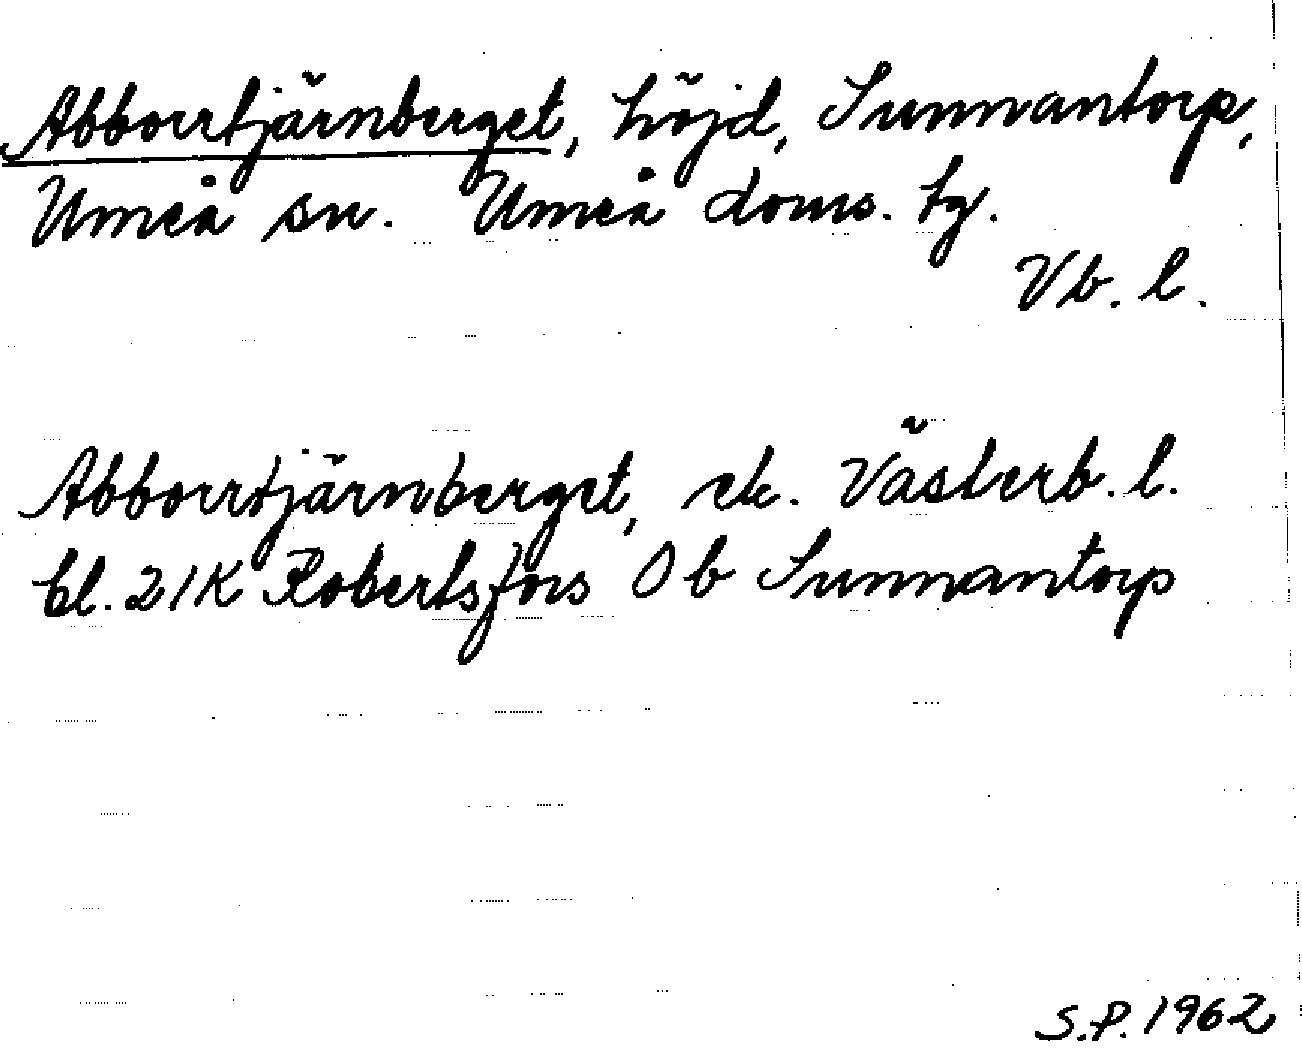 Abborrtjärnberget, höjd, Sunnantorp,
Umeå sn. Umeå doms. tg.
Vb. l.
Abborrtjärnberget, ek. Västerb. l.
bl. 21K Robertsfors Ob Sunnantorp
S.P. 1962